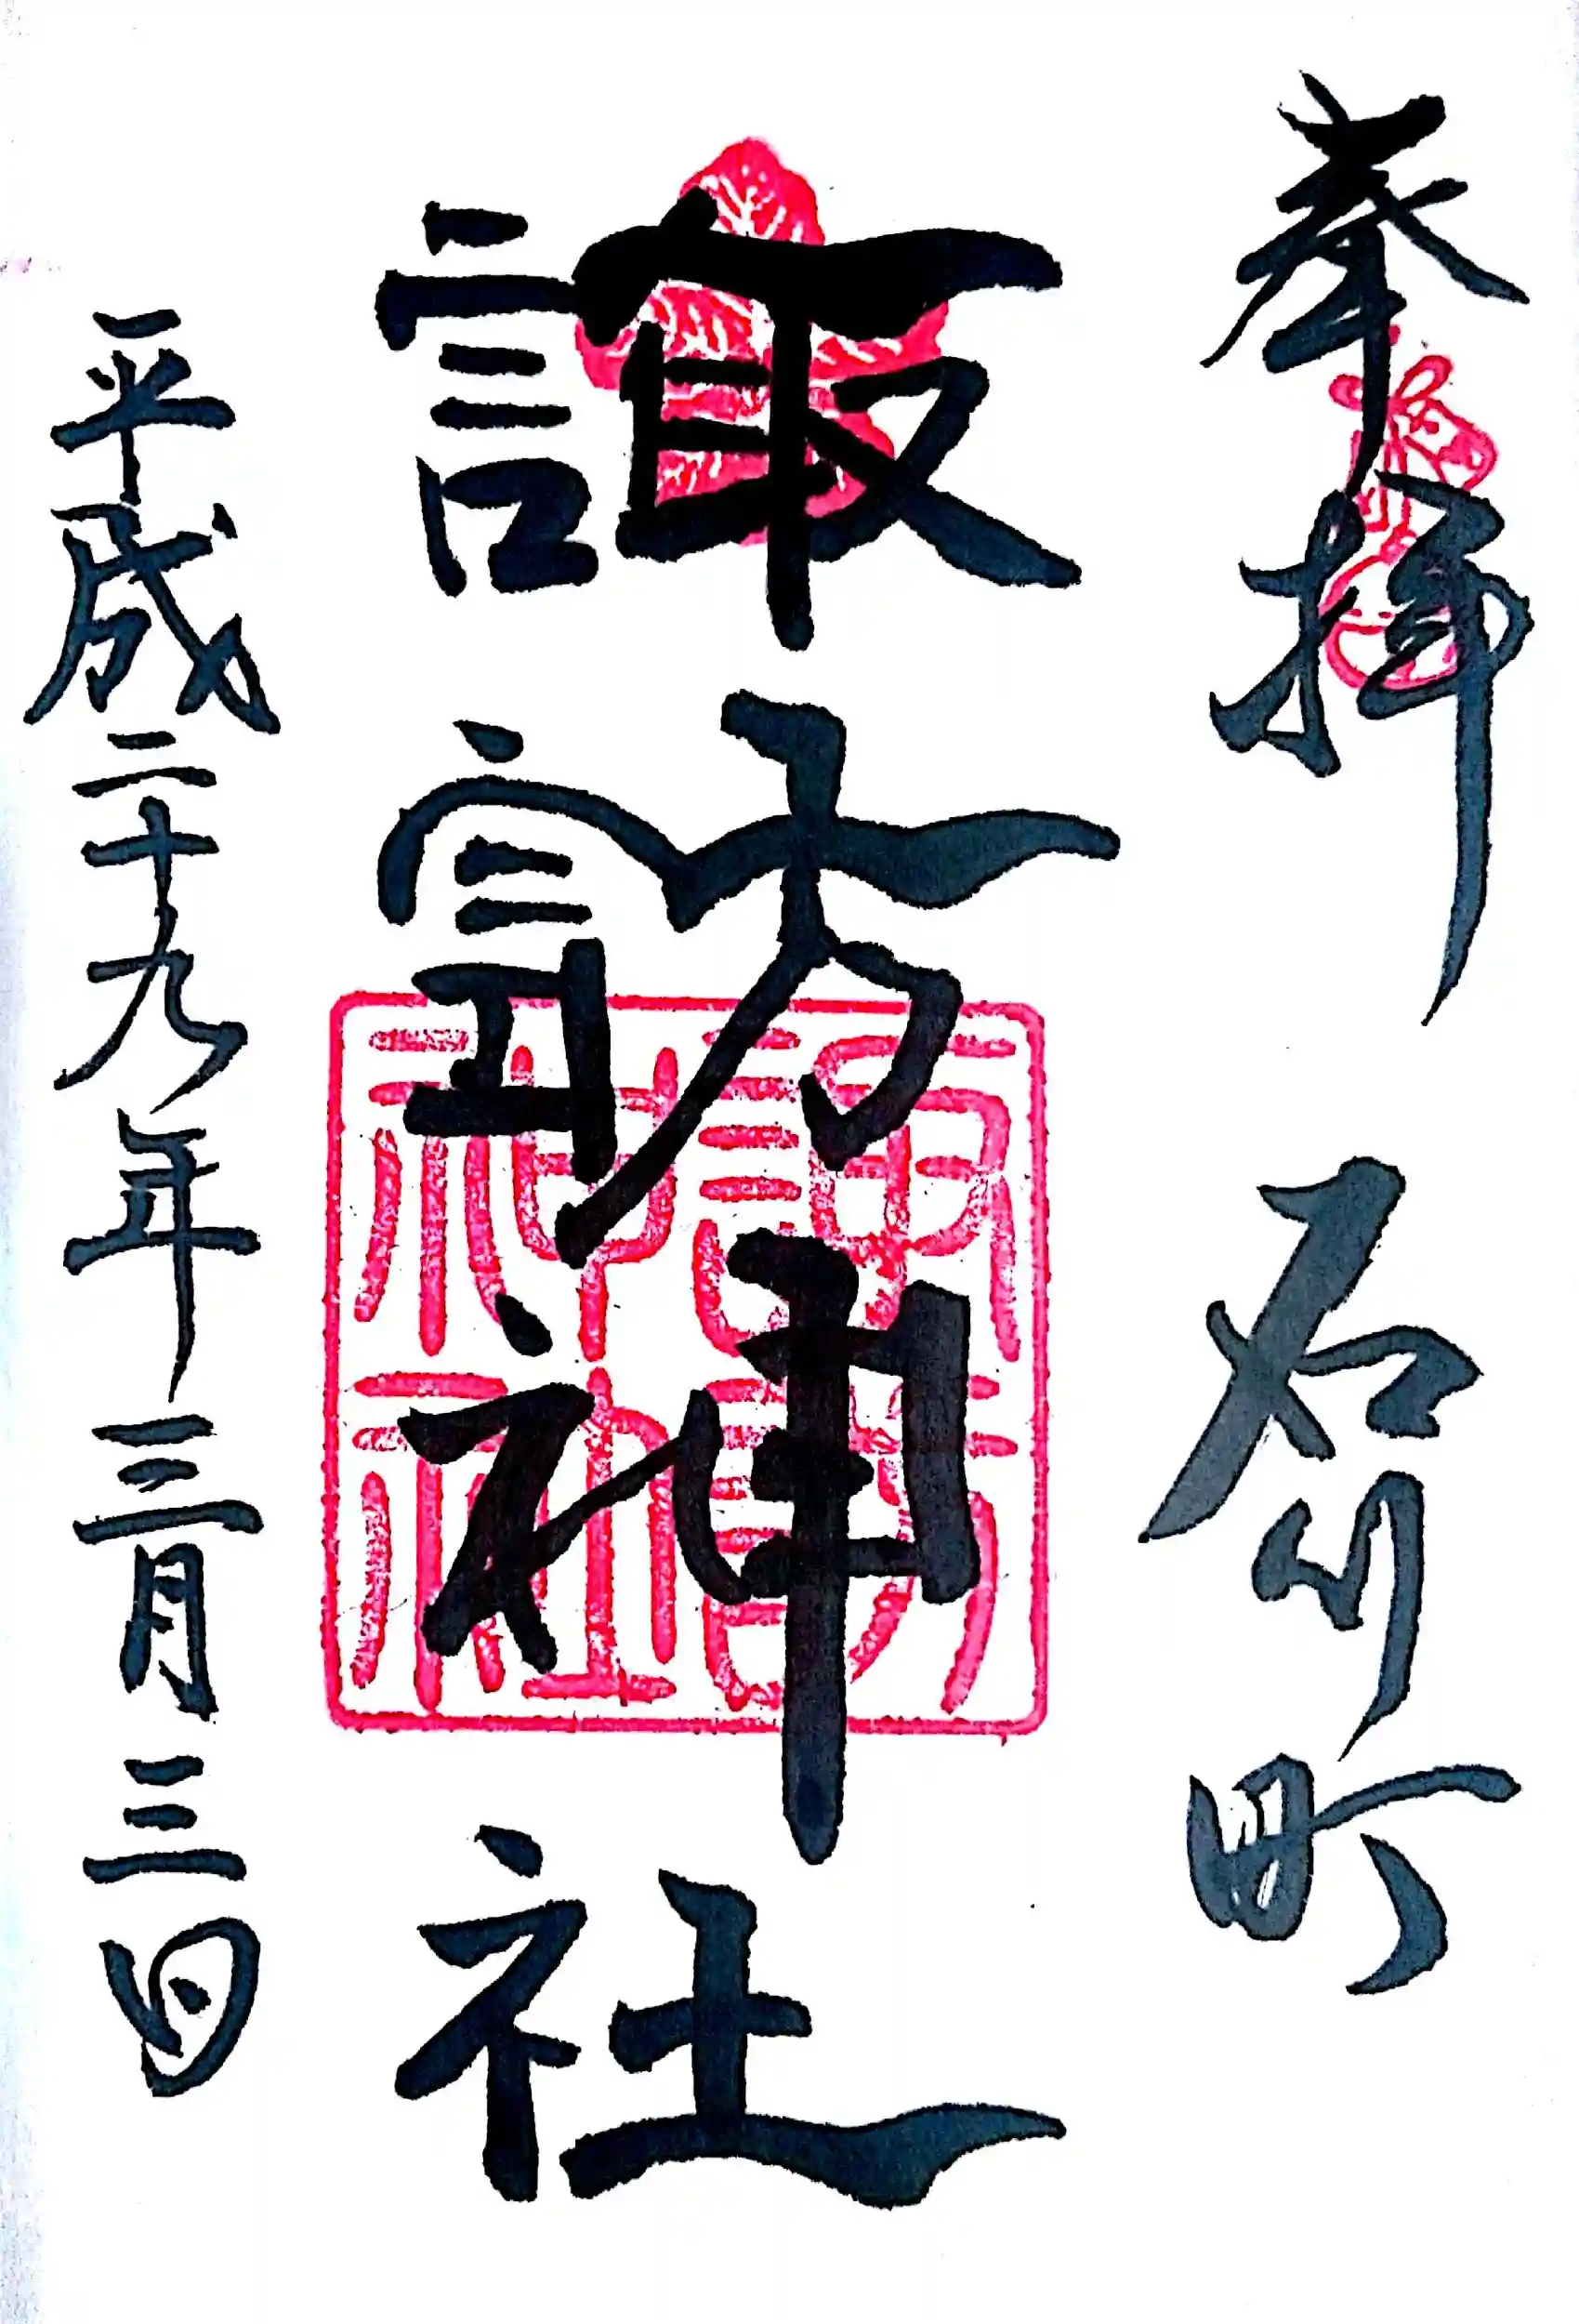 奉拝 石川町
諏訪神社
諏訪神社
平成二十九年三月三日